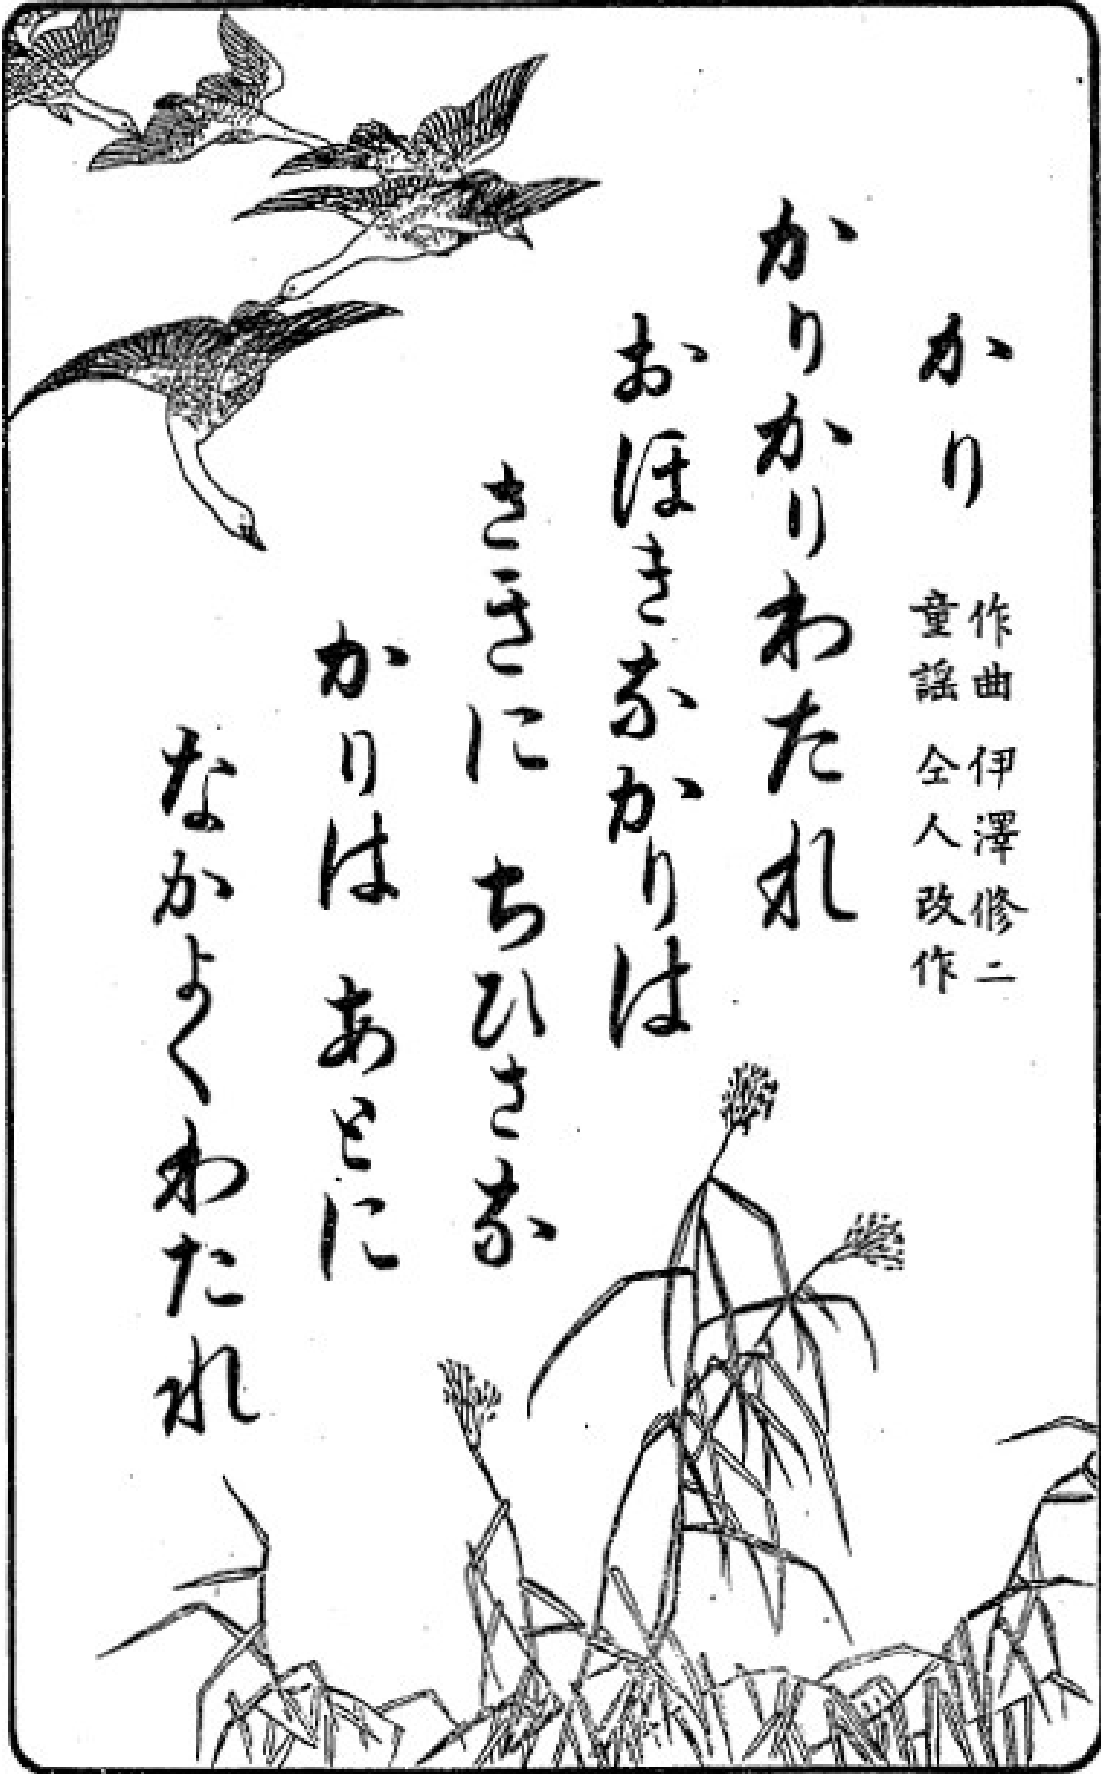 かり
作曲 伊澤修二
童謡 仝人改作
かりかりわたれ
おほきなかりは
さきに ちひさな
かりは あとに
なかよくわたれ